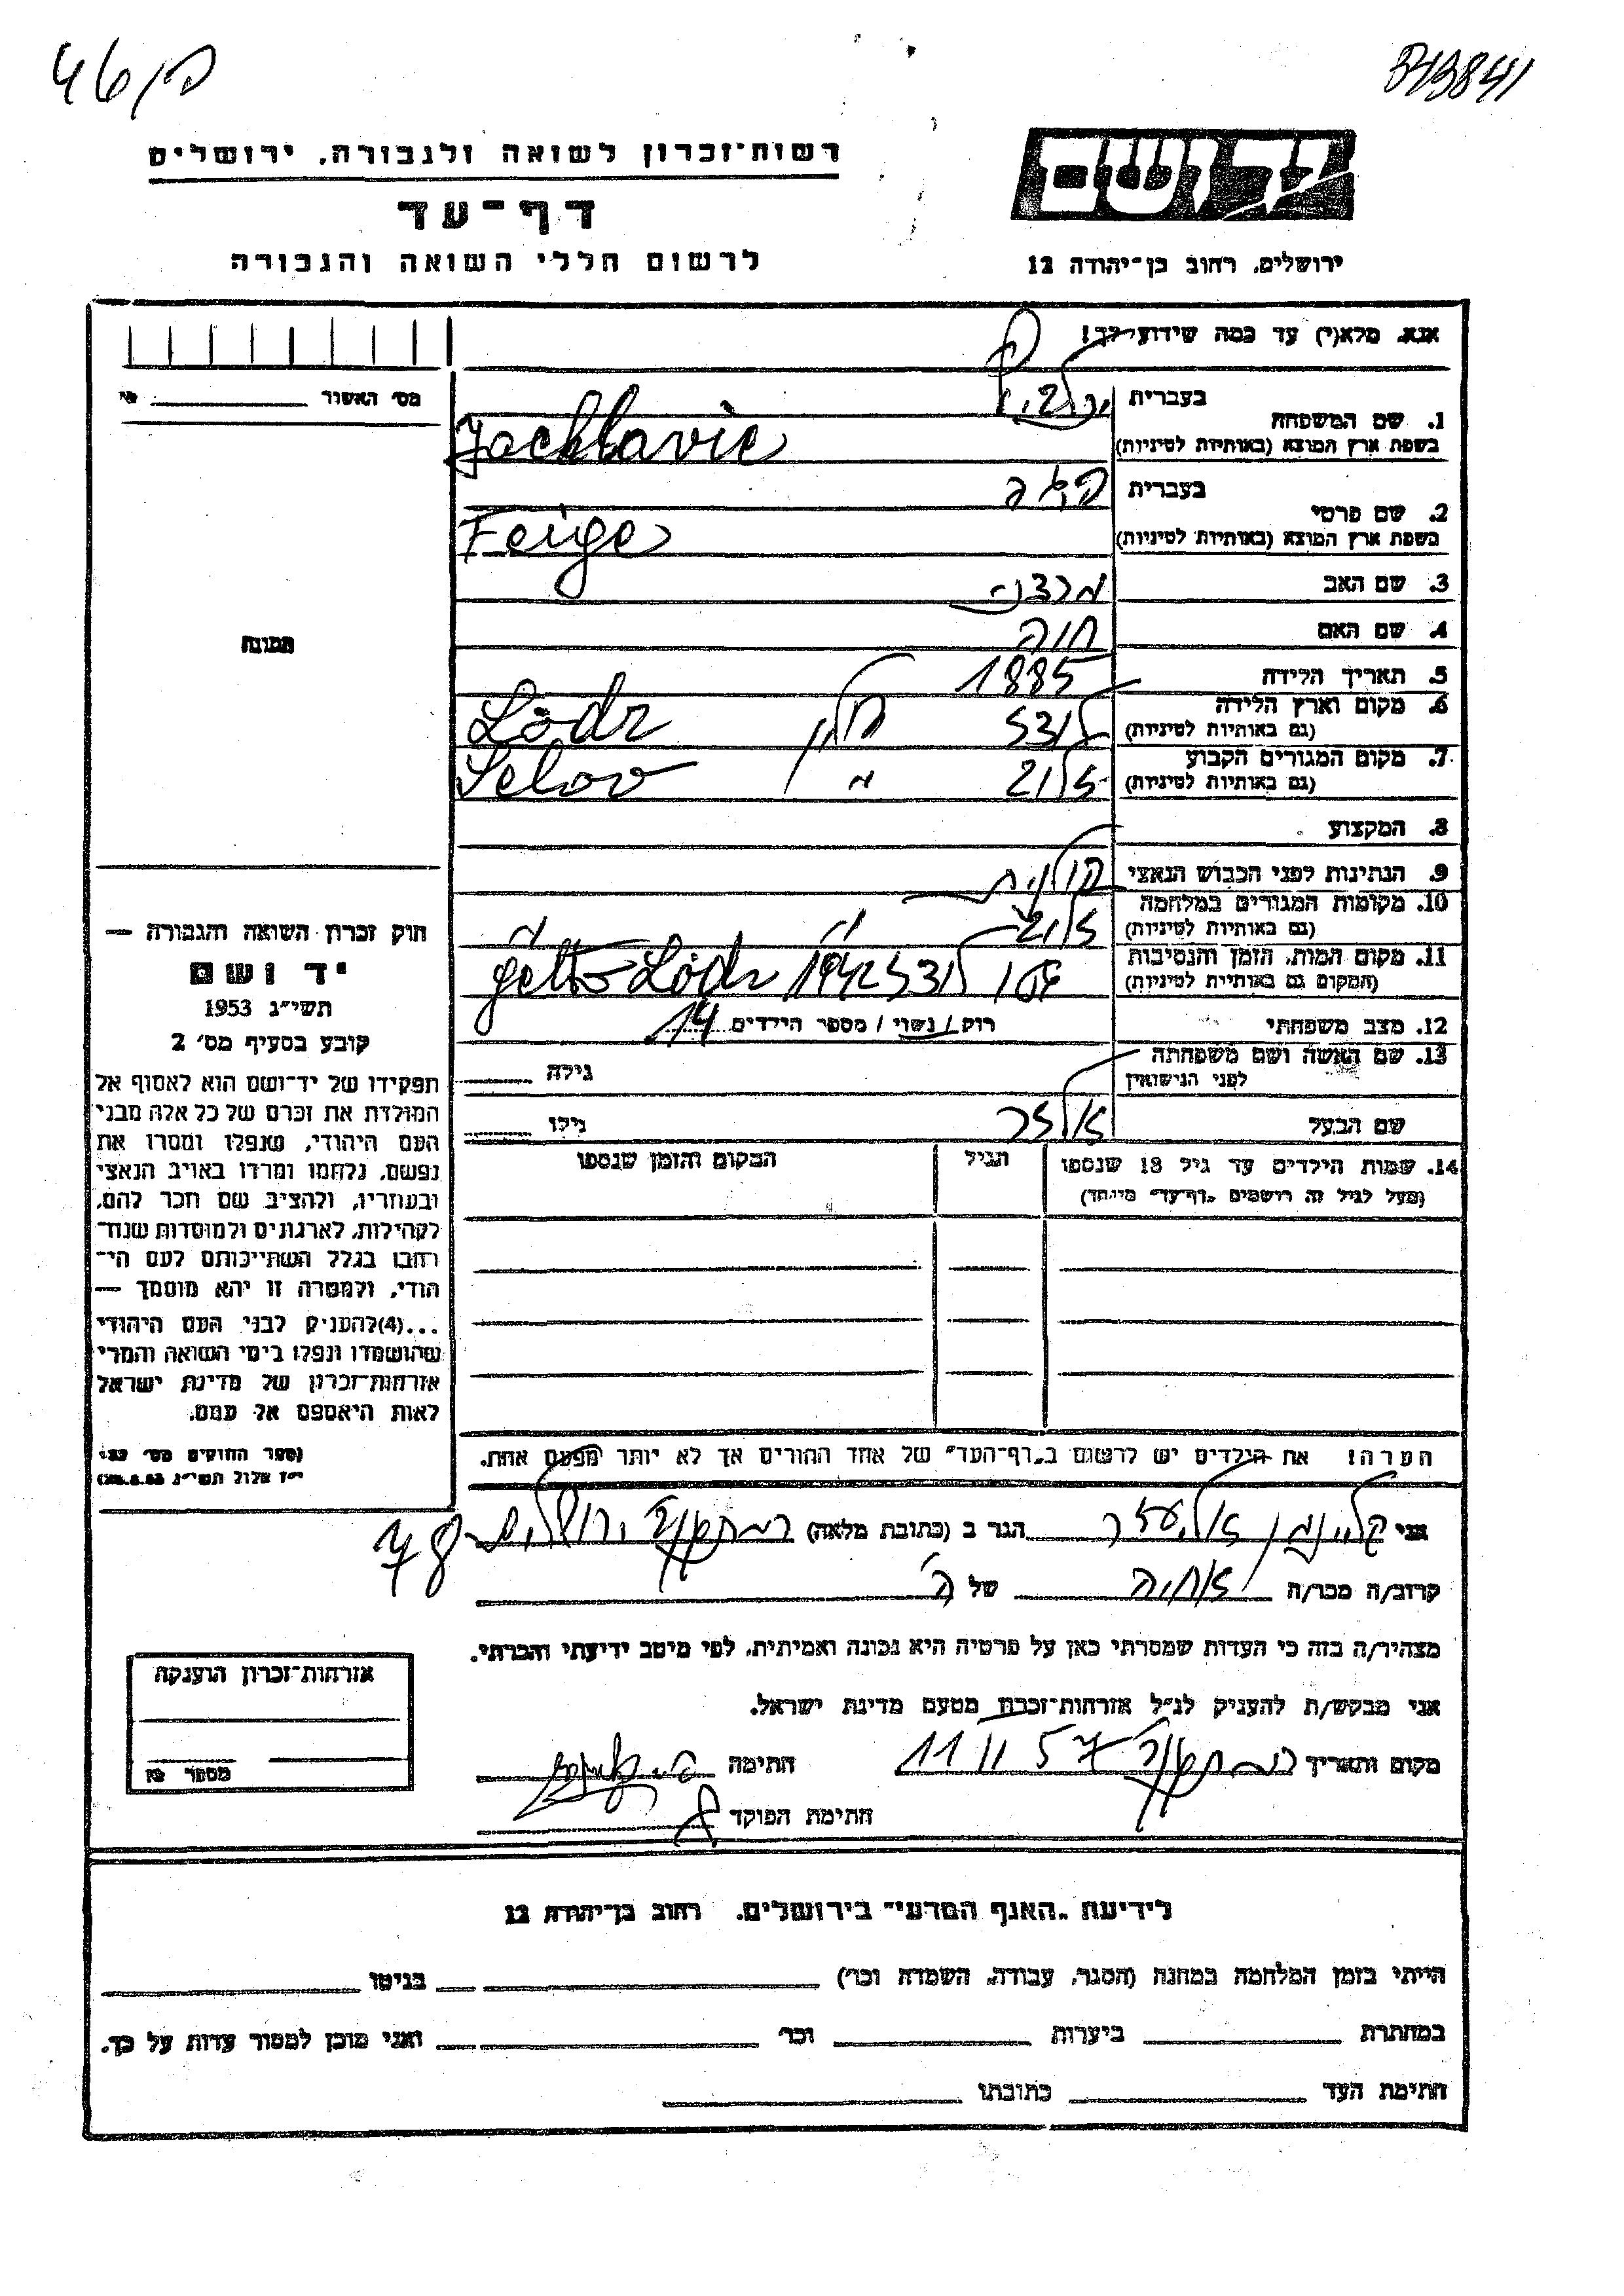 46 / פ
רשות־זכרון לשואה ולגבורה, ירושלים
דף־עד
לרשום חללי השואה והגבורה
יד ושם
ירושלים, רחוב בן־יהודה 12
אנא, מלא(י) עד כמה שידוע לך!
מס' האשור
1. שם המשפחה
בעברית
בשפת ארץ המוצא (באותיות לטיניות) Jachlavic
2. שם פרטי
בעברית פיגה
בשפת ארץ המוצא (באותיות לטיניות) Feige
3. שם האב מרדכי
4. שם האם חוה
5. תאריך הלידה 1885
6. מקום וארץ הלידה (גם באותיות לטיניות) לודז פולין Lodz
7. מקום המגורים הקבוע (גם באותיות לטיניות) זלוב " Selov
8. המקצוע
9. הנתינות לפני הכבוש הנאצי פולנית
10. מקומות המגורים במלחמה (גם באותיות לטיניות) זלוב " "
11. מקום המות, הזמן והנסיבות (המקום גם באותיות לטיניות) גטו לודז 1942 getto Lodz
12. מצב משפחתי רוק / נשוי / מספר הילדים 14
13. שם האשה ושם משפחתה לפני הנישואין גילה
שם הבעל גילו
14. שמות הילדים עד גיל 18 שנספו
(מעל לגיל זה רושמים "דף־עד" מיוחד)
הגיל
המקום והזמן שנספו
הערה! את הילדים יש לרשום ב"דף־העד" של אחד ההורים אך לא יותר מפעם אחת.
תמונה
חוק זכרון השואה והגבורה —
יד ושם
תשי"ג 1953
קובע בסעיף מס' 2
תפקידו של יד־ושם הוא לאסוף אל
המולדת את זכרם של כל אלה מבני
העם היהודי, שנפלו ומסרו את
נפשם, נלחמו ומרדו באויב הנאצי
ובעוזריו, ולהציב שם וזכר להם,
לקהילות, לארגונים ולמוסדות שנח־
רבו בגלל השתייכותם לעם הי־
הודי, ולמטרה זו יהא מוסמך —
...(4)להעניק לבני העם היהודי
שהושמדו ונפלו בימי השואה והמרי
אזרחות־זכרון של מדינת ישראל
לאות היאספם אל עמם.
(ספר החוקים מס' 132,
י"ז אלול תשי"ג 28.8.53)
אני קליינמן אלעזר הגר ב (כתובת מלאה)
קרוב/ה מכר/ה של
מצהיר/ה בזה כי העדות שמסרתי כאן על פרטיה היא נכונה ואמיתית, לפי מיטב ידיעתי והכרתי.
אני מבקש/ת להעניק לנ"ל אזרחות־זכרון מטעם מדינת ישראל.
מקום ותאריך 11 II 57 חתימה
חתימת הפוקד
אזרחות־זכרון הוענקה
מספר
לידיעת "האגף המדעי" בירושלים, רחוב בן־יהודה 12
הייתי בזמן המלחמה במחנה (הסגר, עבודה, השמדה וכו') בגיטו
במחתרת ביערות וכו' ואני מוכן למסור עדות על כך.
חתימת העד כתובתו